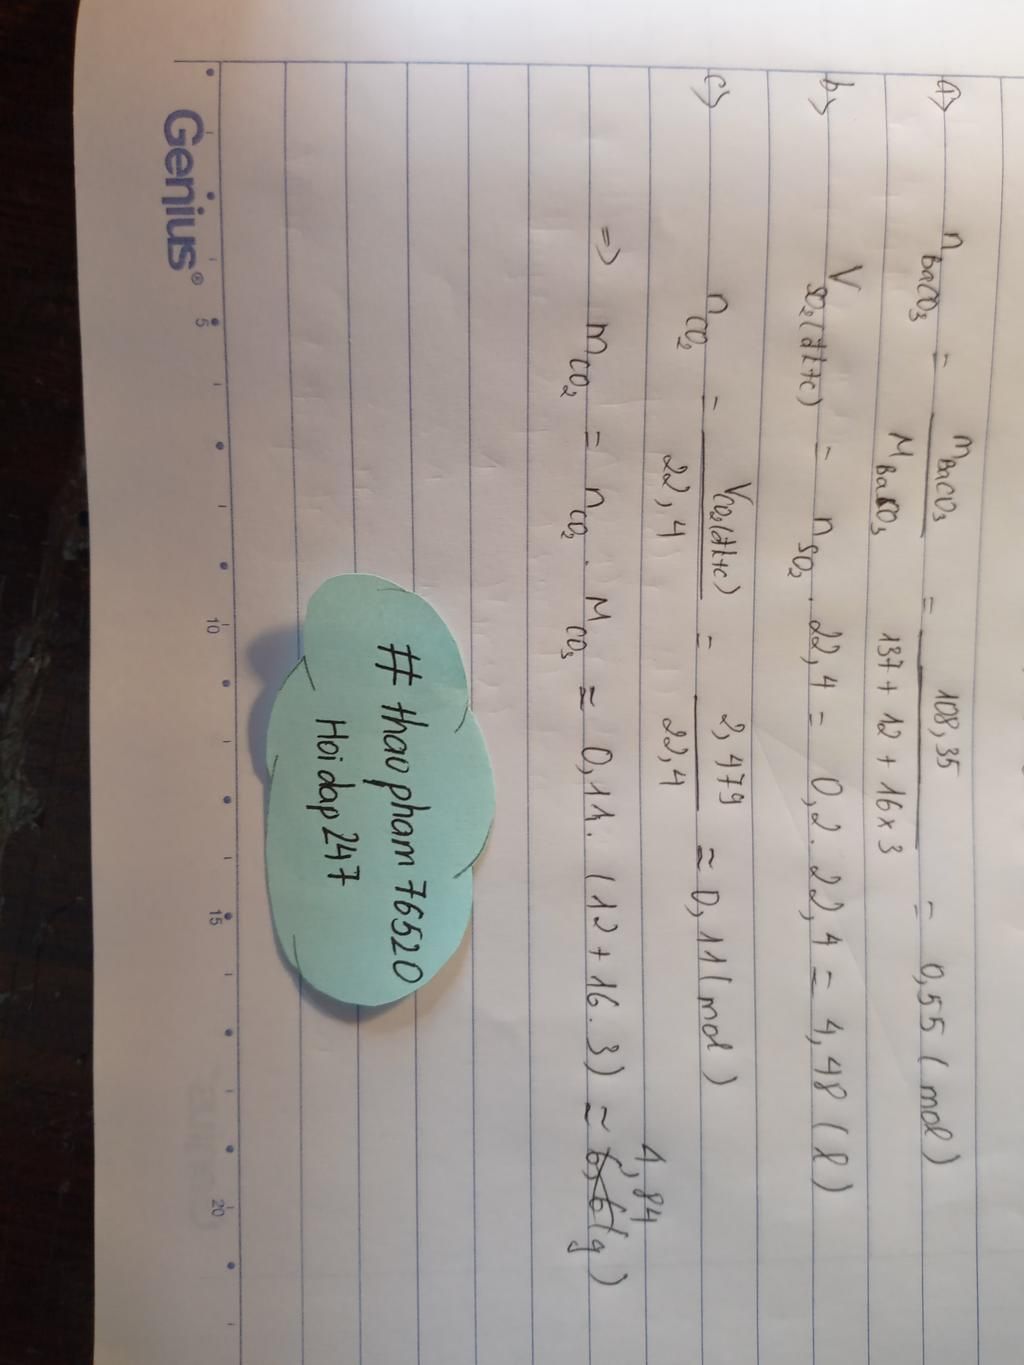 a> n BaCO3 = m BaCO3 / M BaCO3 = 108,35 / 137 + 12 + 16 x 3 = 0,55 (mol)
b> V SO2 (đktc) = n SO2 . 22,4 = 0,2 . 22,4 = 4,48 (l)
c> n CO2 = V CO2 (đktc) / 22,4 = 2,479 / 22,4 ≈ 0,11 (mol)
4,84
=> m CO2 = n CO2 . M CO3 ≈ 0,11. (12 + 16. 3) ≈ 6,6 (g)
# thaopham 76520
Hoidap247
Genius®
5 10 15 20